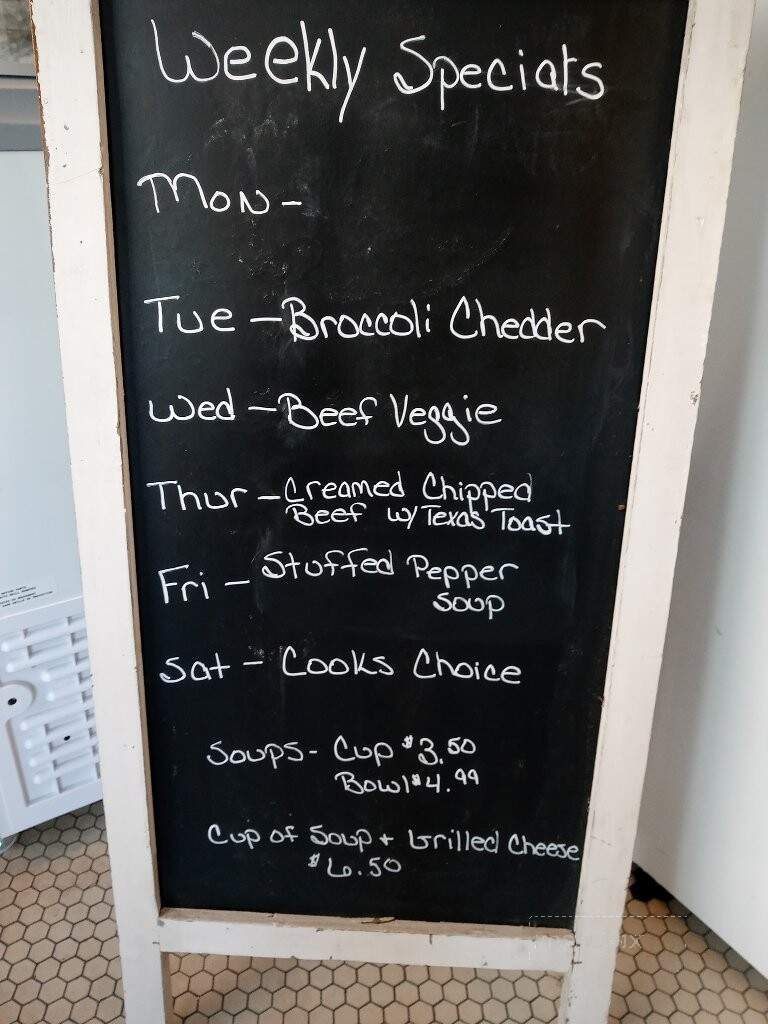 Weekly Specials
Mon -
Tue - Broccoli Chedder
Wed - Beef Veggie
Thur - Creamed Chipped
Beef w/ Texas Toast
Fri - Stuffed Pepper
Soup
Sat - Cooks Choice
Soups - Cup $3.50
Bowl $4.99
Cup of Soup + Grilled Cheese
$6.50